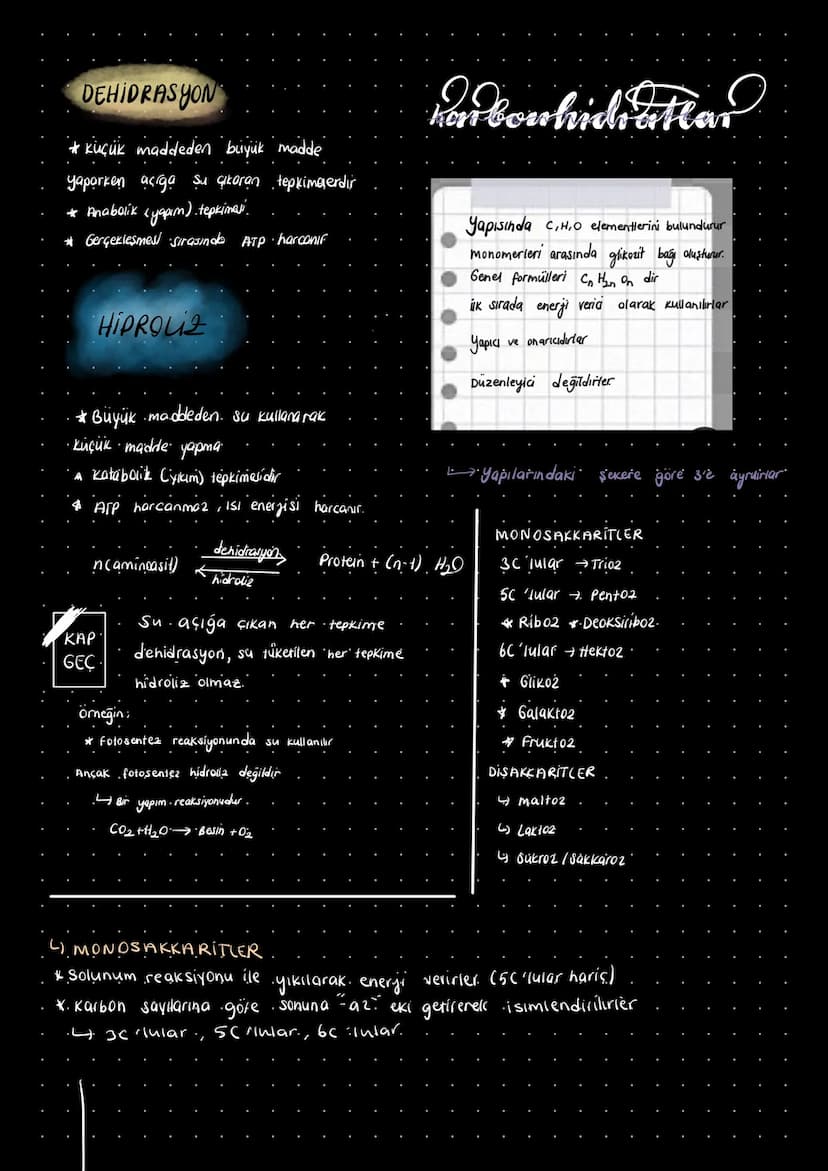 DEHİDRASYON
* küçük maddeden büyük madde
yaparken açığa su çıkaran tepkimelerdir
* Anabolik (yapım) tepkimesi.
* Gerçekleşmesi sırasında ATP harcanır
HİDROLİZ
* Büyük maddeden su kullanarak
küçük madde yapma
* katabolik (yıkım) tepkimesidir
* ATP harcanmaz, ısı enerjisi harcanır.
n(aminoasit) dehidrasyon Protein + (n-1) H₂O
hidroliz
KAP GEÇ
Su açığa çıkan her tepkime
dehidrasyon, su tüketilen her tepkime
hidroliz olmaz.
Örneğin;
* Fotosentez reaksiyonunda su kullanılır
Ancak fotosentez hidroliz değildir
↳ Bir yapım reaksiyonudur.
CO₂+H₂O → Besin + O₂
karbonhidratlar
Yapısında C,H,O elementlerini bulundurur
monomerleri arasında glikozit bağı oluşturur.
Genel formülleri Cₙ H₂ₙ Oₙ dir
ilk sırada enerji verici olarak kullanılırlar
Yapıcı ve onarıcıdırlar
Düzenleyici değildirler
↳ Yapılarındaki şekere göre 3'e ayrılırlar
MONOSAKKARİTLER
3C'lular → Trioz
5C'lular → Pentoz
* Riboz * Deoksiriboz
6C'lular → Hektoz
* Glikoz
* Galaktoz
* Fruktoz
DİSAKKARİTLER
↳ maltoz
↳ Laktoz
↳ Sükroz / Sakkaroz
↳ MONOSAKKARİTLER
* Solunum reaksiyonu ile yıkılarak energi verirler (5C'lular hariç)
* Karbon sayılarına göre sonuna "-az" eki getirerek isimlendirilirler
↳ 3C'lular, 5C'lular, 6C'lular.